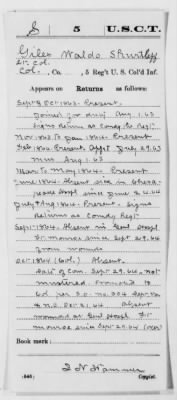 S | 5 | U.S.C.T.
Giles Waldo Shurtleff
Lt. Col.
Col., Co. , 5 Reg't U. S. Col'd Inf.
Appears on Returns as follows:
Sept & Oct 1863. Present.
Joined for duty Aug 1.63
Signs Return as Comdg Regt
Nov 1863 to Jan 1864. Present
Feb 1864. Present. Appt July 29.63
Aug 1.63
Mar to May 1864. Present
June 1864. Absent sick in
since June
July & Aug 1864. Present. Signs
Return as Comdg Regt
Sept. 1864. Absent in Genl Hospl
Ft. Monroe since Sept 29.64
from wounds
Oct 1864 (Col.) Absent.
Date of Com. Sept. 29.64, not
mustered. Promoted to
Col per S.O. No. 304
Oct. 31.64 Absent
wounded at Genl Hospl Ft.
Monroe since Sept 29.64
Book mark:
(546) Copyist.